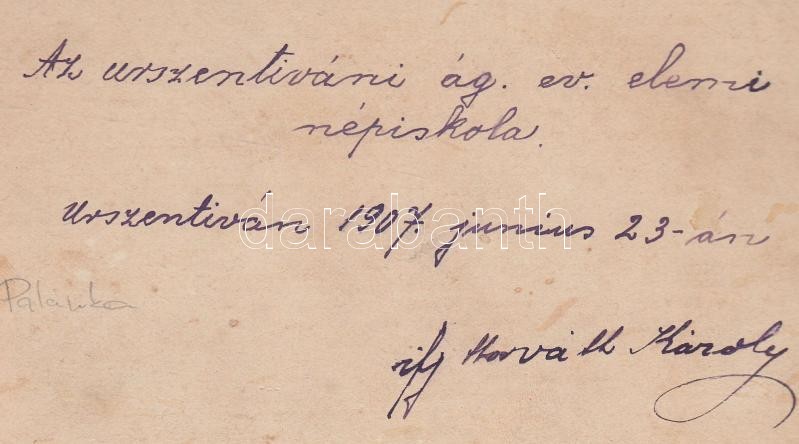 Az urszentiváni ág. ev. elemi
népiskola.
Urszentiván 1907. junius 23-án
darabanth
Palánka
ifj Horváth Károly